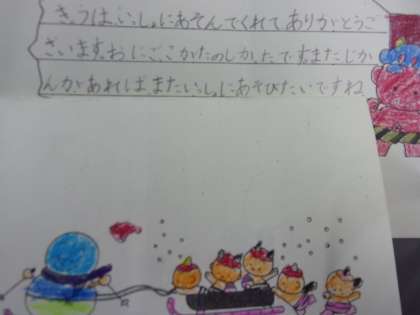 きょうは、いっしょにあそんでくれてありがとうご
ざいます。おにごこがたのしかったです。またじか
んがあれば、またいっしょにあそびたいですね